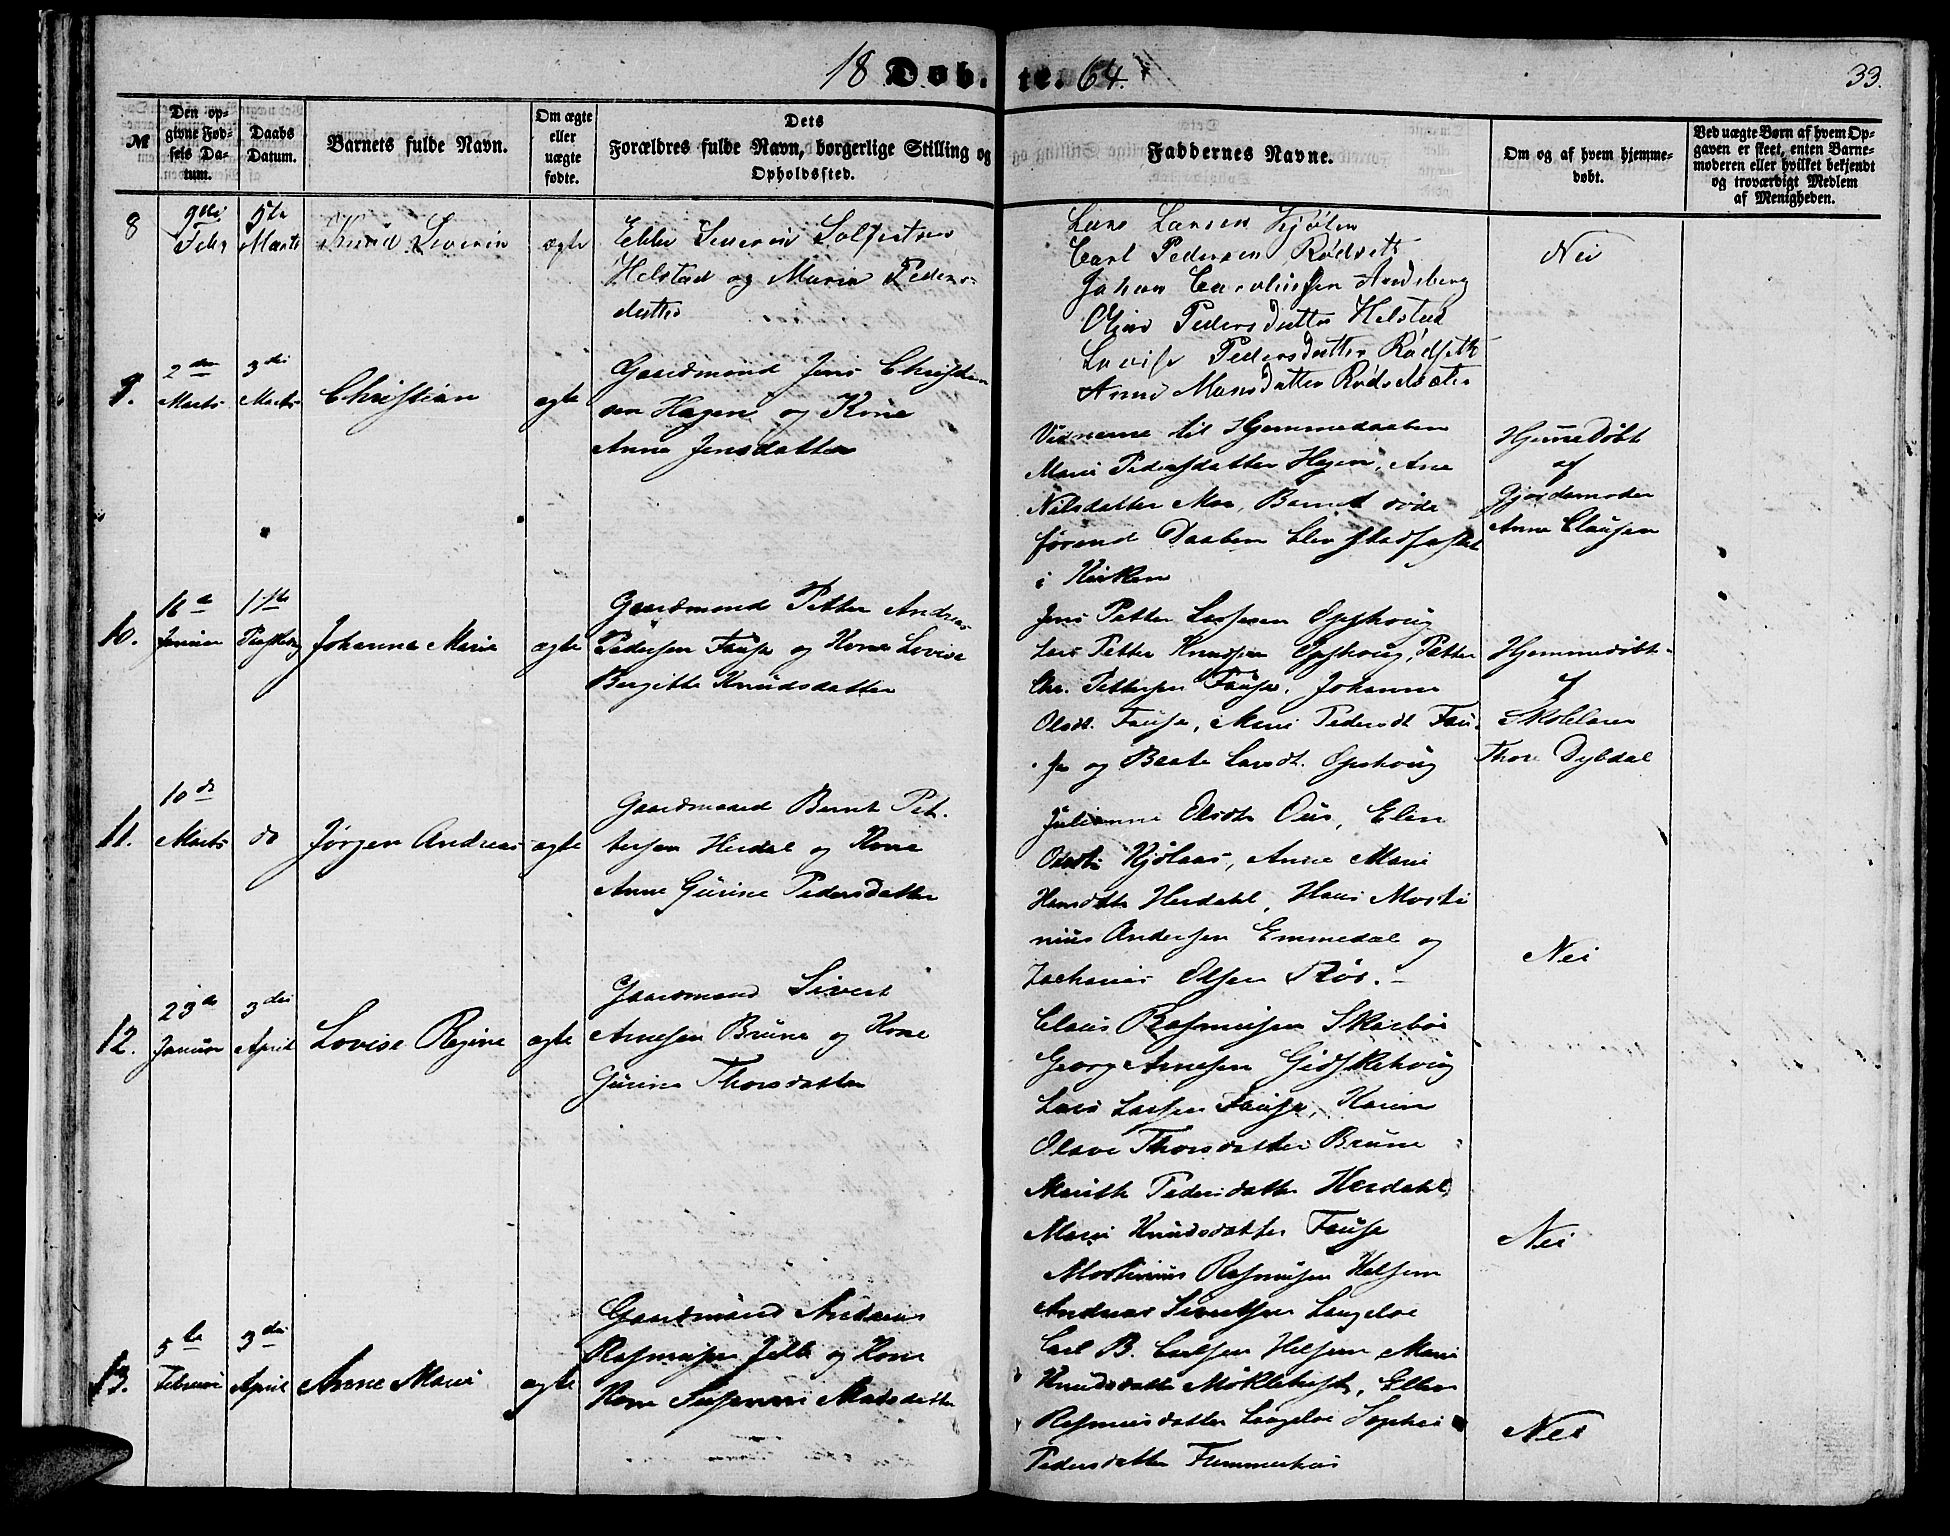 18 Døb-te. 64.
33.
M
Den opgivne Fødsels Datum.
Daabs Datum.
Barnets fulde Navn.
Om ægte eller uægte fødte.
Dets Forældres fulde Navn, borgerlige Stilling og Opholdssted.
Faddernes Navne.
Om og af hvem hjemmedøbt.
Ved uægte Børn af hvem Opgaven er skeet, enten Barnemoderen eller hvilket bekjendt og troværdigt Medlem af Menigheden.
8
9de Febr
5te Marts
Knud Severin
ægte
Ebbe Severin
Helstad og Maren Peders-
datter
Lars Larsen Kjølen
Carl Pedersen Rødseth
Johan
Oline Pedersdatter Helstad
Lovise Pedersdatter Rødseth
Anne Monsdatter
Nei
9.
2den Marts
3die Marts
Christian
ægte
Gaardmand Jens Christen
sen Hagen og Kone
Anne Jensdatter
Vidnerne til Hjemmedaaben
Marie Pedersdatter Hagen, Ane
Nilsdatter Moe, Barnet døde
førend Daaben blev stadfæstet
i Kirken
Hjemedøbt
af
Gjordemoder
Anne Clausen
10.
16de Januar
1ste Paaskedag
Johanne Marie
ægte
Gaardmand Petter Andreas
Pedersen Fause og Kone Lovise
Bergitte Knudsdatter
Jens Petter Larsen Opshoug
Lars Petter Knudsen Opshoug, Petter
Chr. Pettersen Fause, Johanne
Olsdt. Fause, Marie Pedersdt Fau-
se og Beate Larsdt. Opshoug
Hjemmedøbt
af
Skolelærer
Thore Dybdal
11.
10de Marts
do
Jørgen Andreas
ægte
Gaardmand Bernt Pet-
tersen Herdal og Kone
Anne Gurine Pedersdatter
Julianne Olsdt Ous, Elen
Olsdt Kjølaas, Anne Marie
Hansdttr Herdahl, Hans Marti
nius Andersen Emmedal og
Zacharias Olsen
Nei
12.
23de Januar
3die April
Lovise Regine
ægte
Gaardmand Sivert
Arnesen Brune og Kone
Gurine Thorsdatter
Claus Rasmusen Skarbøe
Georg Arnesen Gidskehoug
Lars Larsen Fause, Karen
Olave Thorsdatter Brune
Marith Pedersdatter Herdahl
Marie Knudsdatter Fause
Nei
13.
5te Februar
3die April
Anne Marie
ægte
Gaardmand Andreas
Rasmusen og Kone
Kone Susanne Madsdatter
Martinius Rasmusen Helsem
Andreas Sivertsen Langeloe
Carl B. Carlsen Helsem Marie
Knudsdatter Møklebust, Ellen
Rasmusdatter Langeloe Sophie
Pedersdatter Flemmenhus
Nei